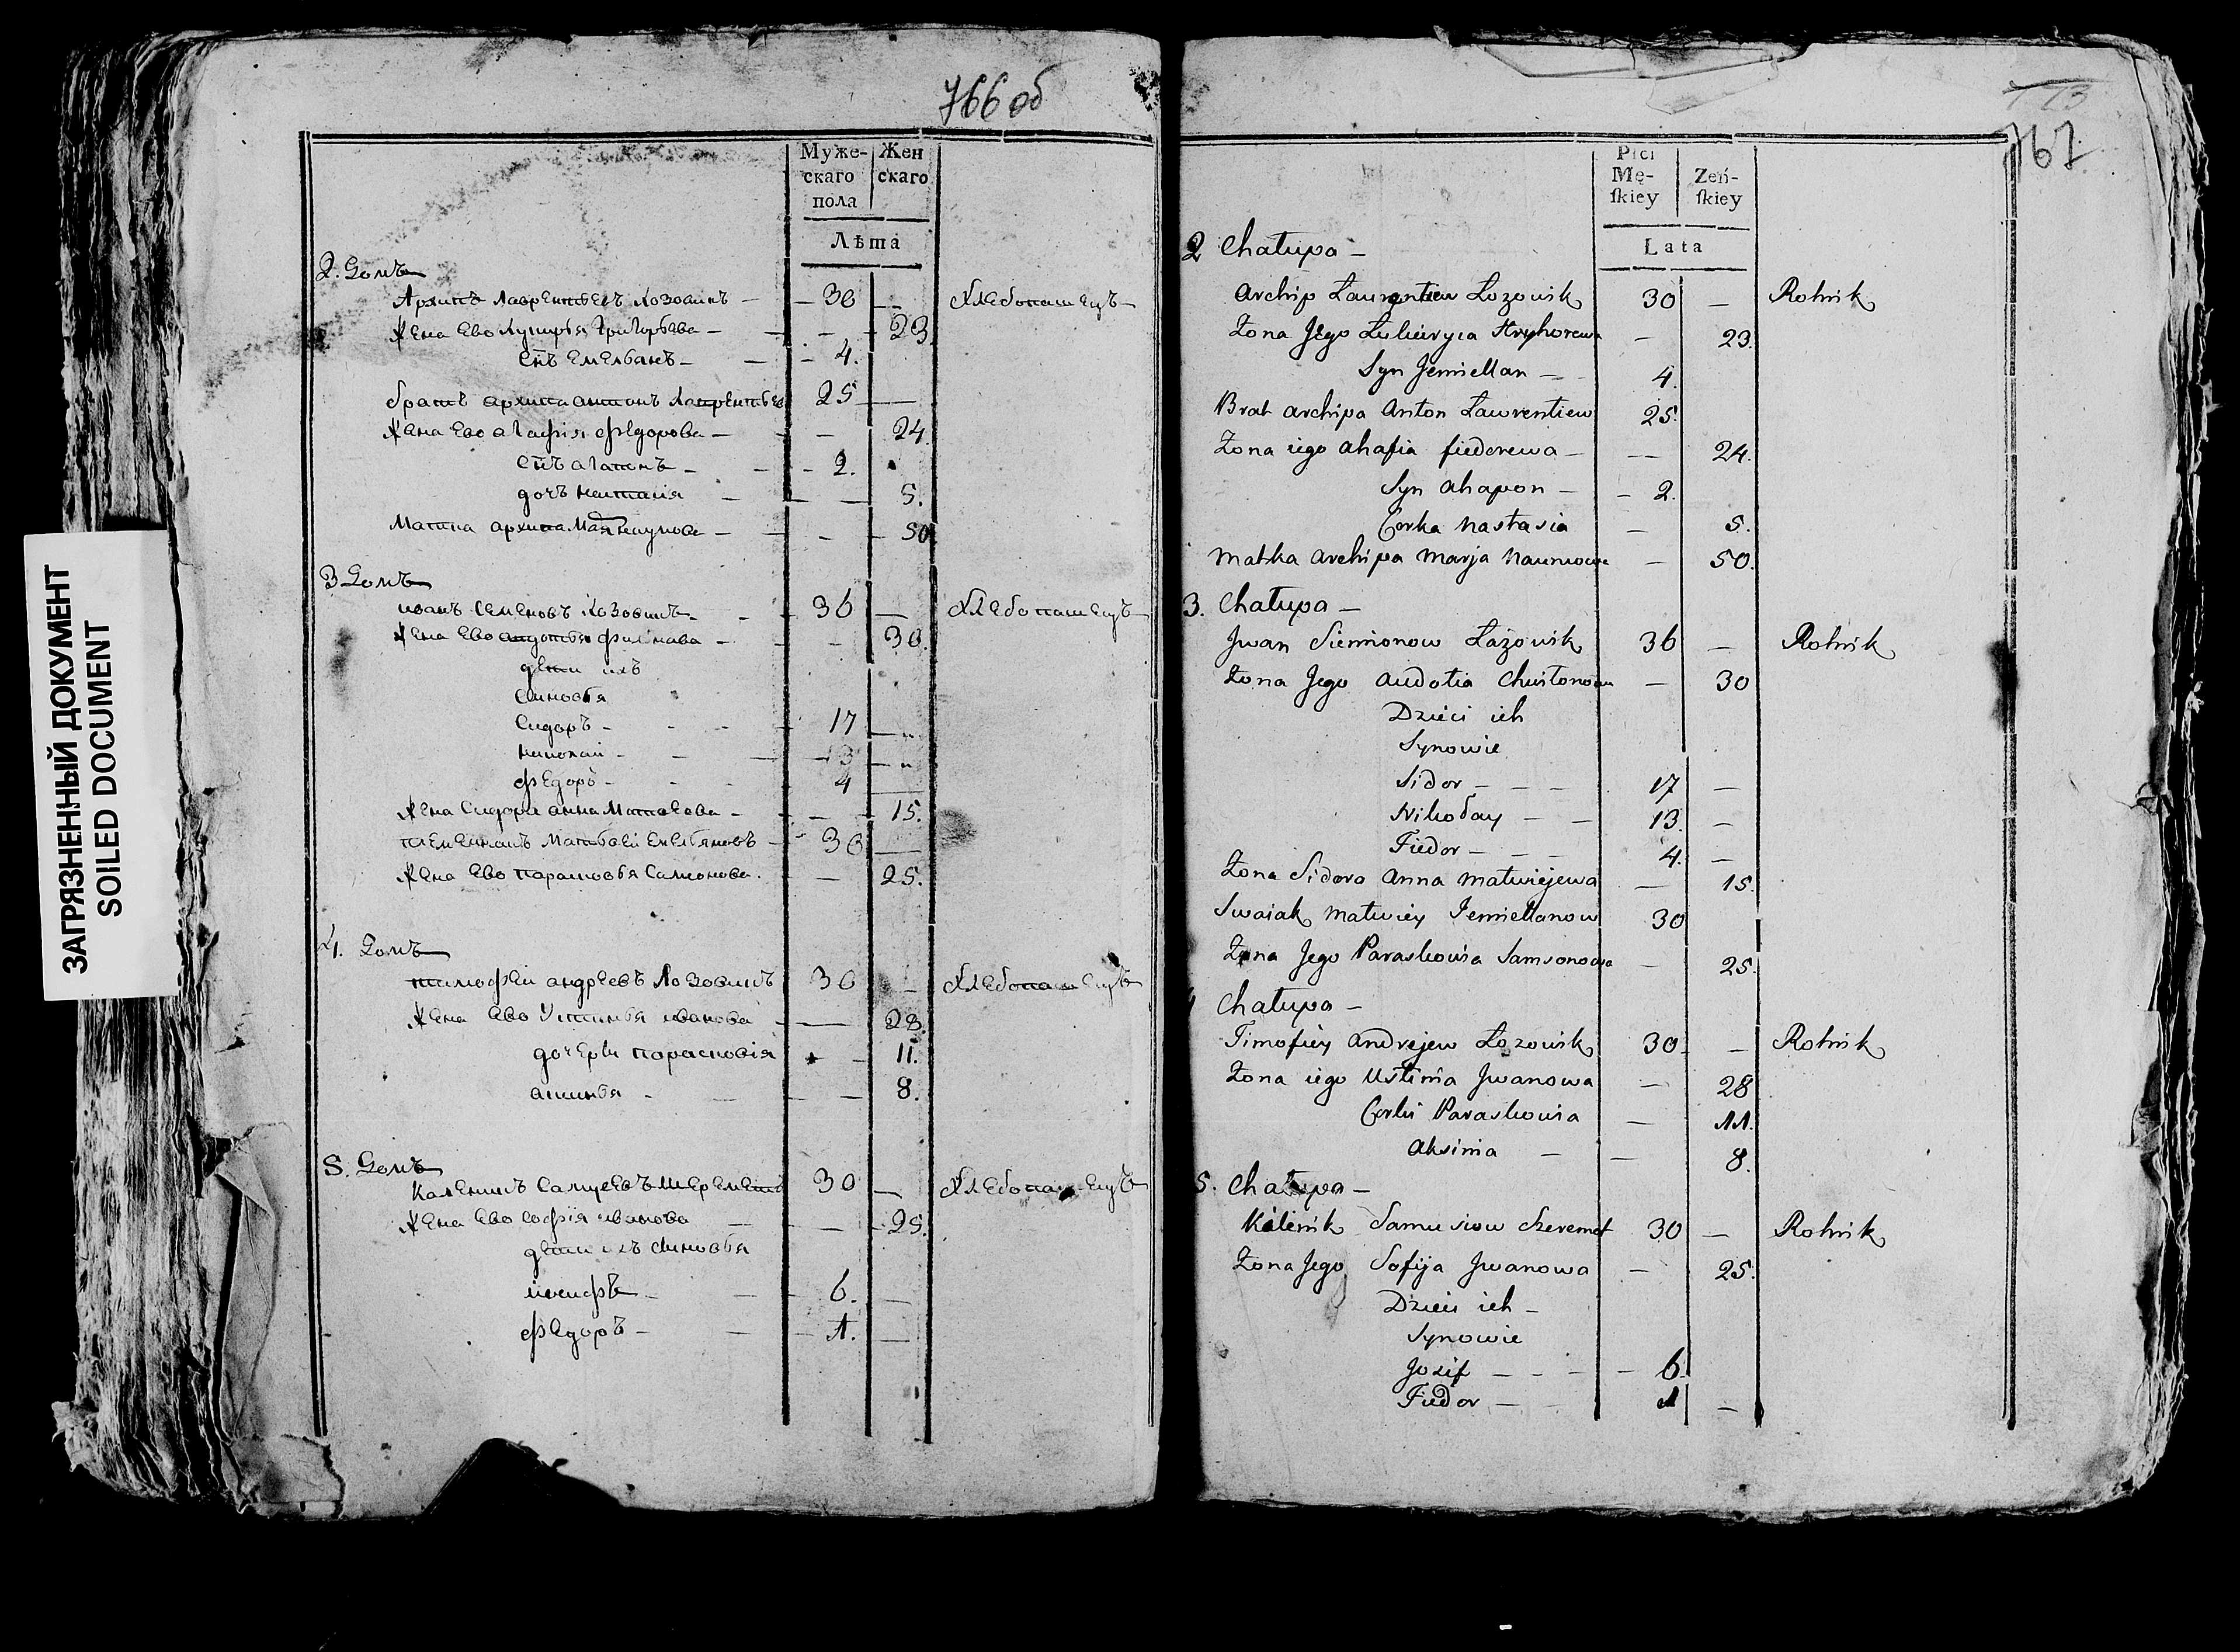 ЗАГРЯЗНЕННЫЙ ДОКУМЕНТ
SOILED DOCUMENT
766 об
Муже-
скаго
пола
Жен
скаго
Лѣта
2. Домъ
Архипъ Лаврентьевъ Лозовикъ — 30 — Хлебопашецъ
Жена Ево Лукирья Григорьева — — 23
Снъ Емельянъ — 4.
братъ архипа антонъ Лаврентьев 25 —
Жена Ево агафія федорова — — 24.
Снъ агапонъ — 2.
дочъ настасія — — 5.
Матка архипа Маря наумова — — 50
3 Домъ
иванъ Семеновъ Лозовикъ — 36 — Хлебопашецъ
Жена Ево авдотья — — 30.
дети ихъ
Синовья
Сидоръ — 17 —
николай — 13 —
федоръ — 4 —
Жена Сидора анна Матвеева — — 15.
Матвей Емельяновъ — 30 —
Жена Ево парасковья Самсонова. — 25.
4. Домъ
тимофей андреевъ Лозовикъ 30 — Хлебопашецъ
Жена Ево Устинья иванова — 28.
дочери парасковія — 11.
— — 8.
5. Домъ
Каленикъ Самусевъ Шеремет 30 — Хлебопашецъ
Жена Ево софія иванова — — 25.
дети ихъ Синовья
іосифъ — 6. —
федоръ — 1. —
767
Płci
Mę-
ſkiey
Żeń-
ſkiey
Lata
2 Chałupa —
Archip Lawrentiew Łozowik 30 — Rolnik
Żona Jego Łukieryia Hryhorewa — 23.
Syn Jemiellan — 4.
Brat archipa Anton Lawrentiew 25.
Żona iego ahafia fiedorewa — — 24.
Syn ahapon — 2.
Corka Nastasia — 5.
Matka Archipa Marja Naumowa — 50.
3. Chałupa —
Jwan Siemionow Łozowik 36 — Rolnik
Żona Jego Audotia — 30
Dzieci ich
Synowie
Sidor — 17 —
Nikołay — 13. —
Fiedor — 4. —
Żona Sidora Anna Matwiejewa — 15.
Swaiak Matwiey Jemiellanow 30
Żona Jego Paraskowia Samsonowa — 25.
4 Chałupa —
Timofiey Andrejew Łozowik 30 — Rolnik
Żona iego Ustinia Jwanowa — 28
Corki Paraskowia — 11.
Aksinia — — 8.
5. Chałupa —
Kalenik Samusiow Szeremet 30 — Rolnik
Żona Jego Sofija Jwanowa — 25.
Dzieci ich —
Synowie
Jozif — 6.
Fiedor — 1 —